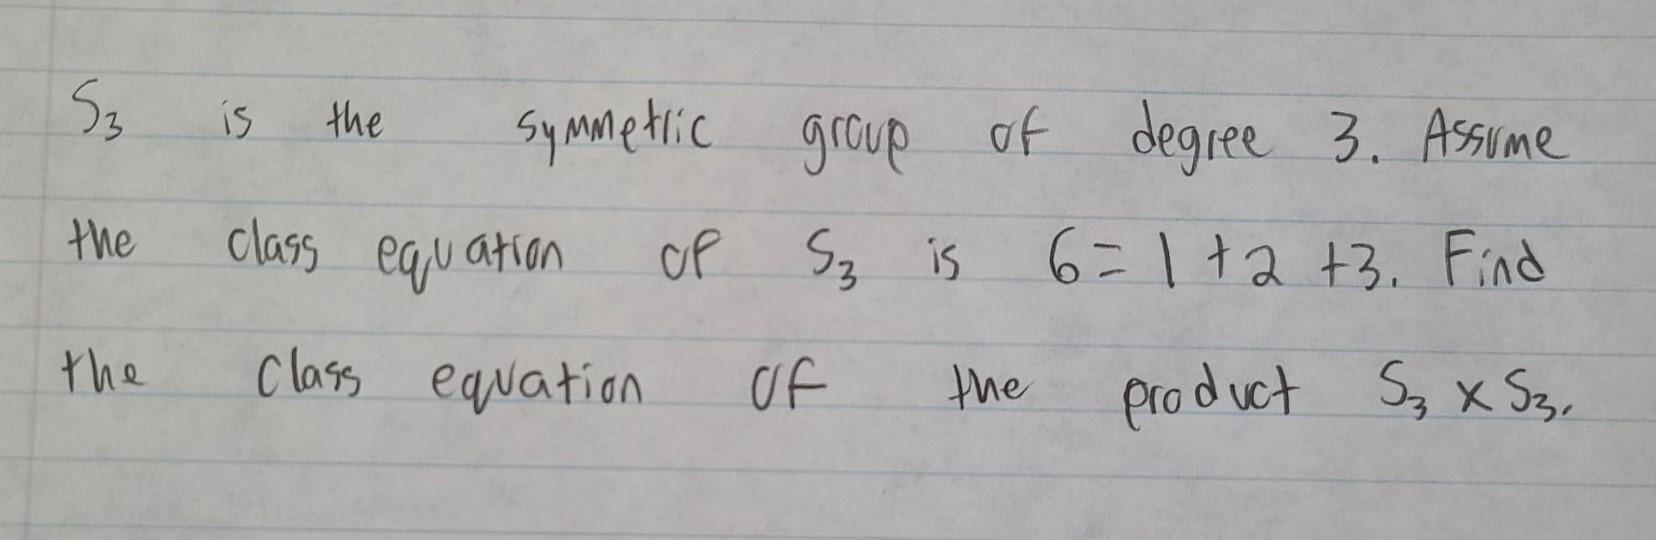 S₃ is the symmetric group of degree 3. Assume
the class equation of S₃ is 6 = 1 + 2 + 3. Find
the class equation of the product S₃ × S₃.